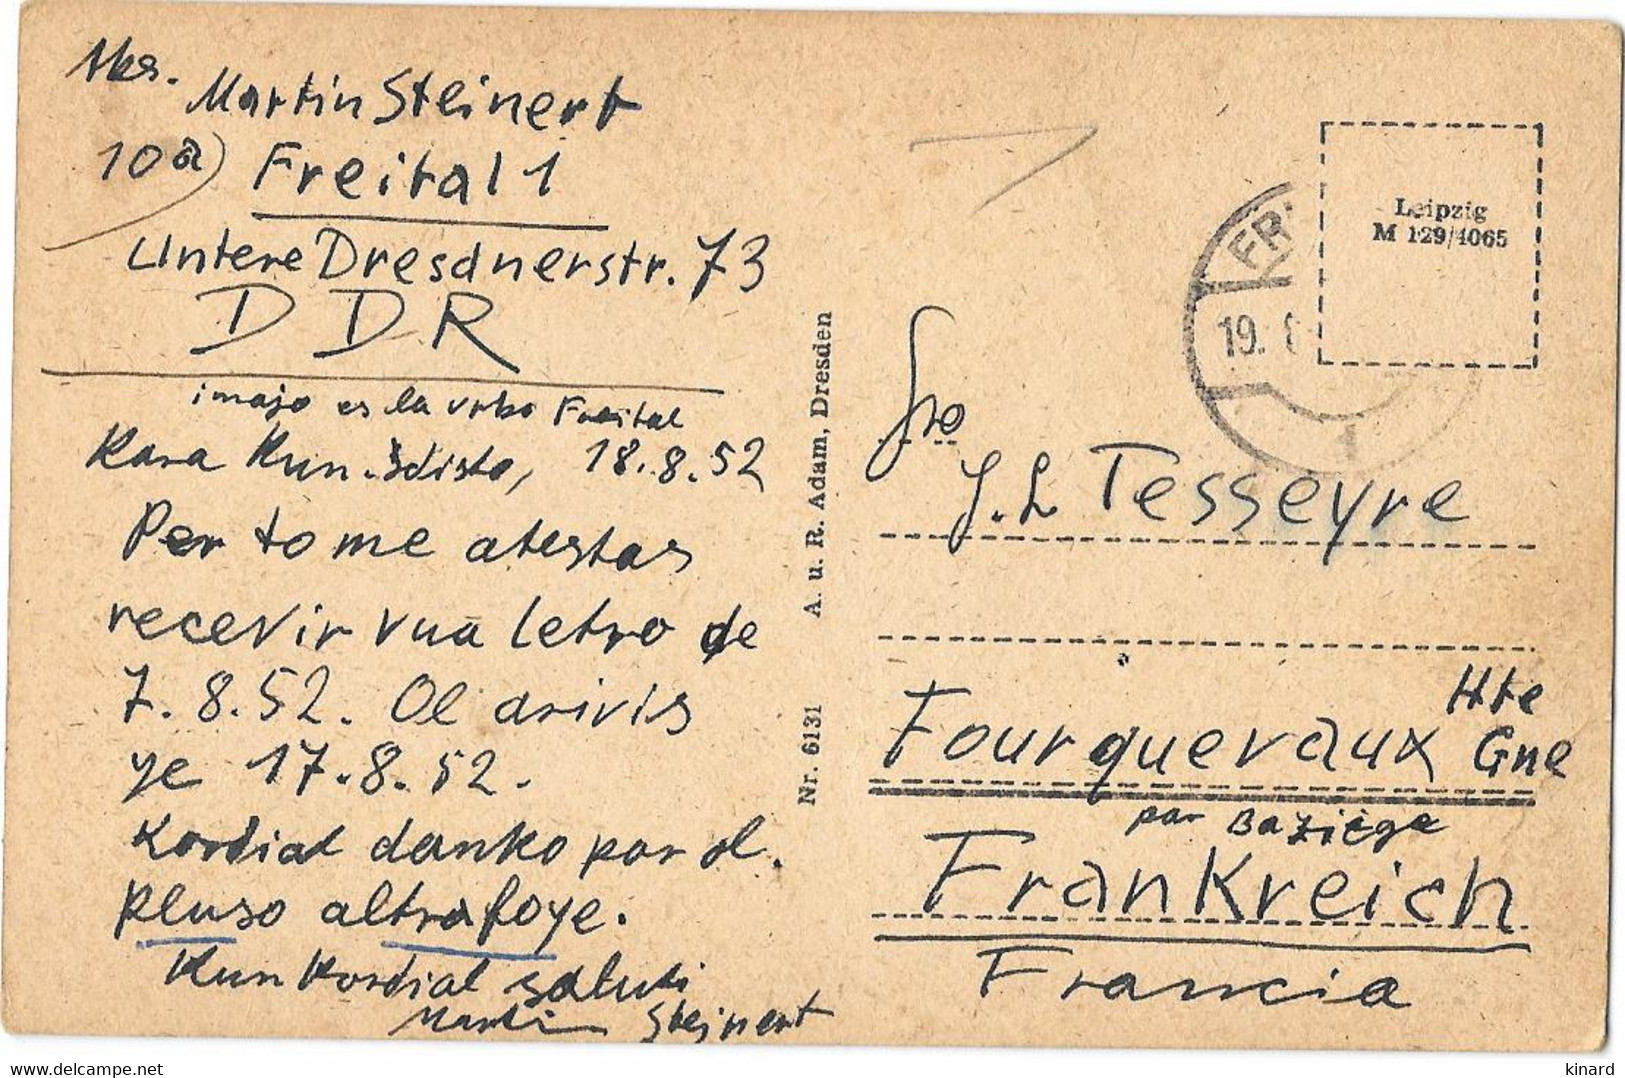 Abs.
Martin Steinert
10a) Freital 1
Untere Dresdnerstr. 73
DDR
imajo es la urbo Freital
Kara Kun-idisto, 18.8.52
Per to me atestas
recevir vua letro de
7.8.52. Ol arivis
ye 17.8.52.
Kordial danko por ol.
pluso altrafoye.
Kun kordial saluti
Martin Steinert
Nr. 6131 A. u. R. Adam, Dresden
Leipzig
M 129/4065
FR
19. 8
1
Sro
J. L Tesseyre
Hte
Fourquevaux Gne
par Baziège
Frankreich
Francia
kinard